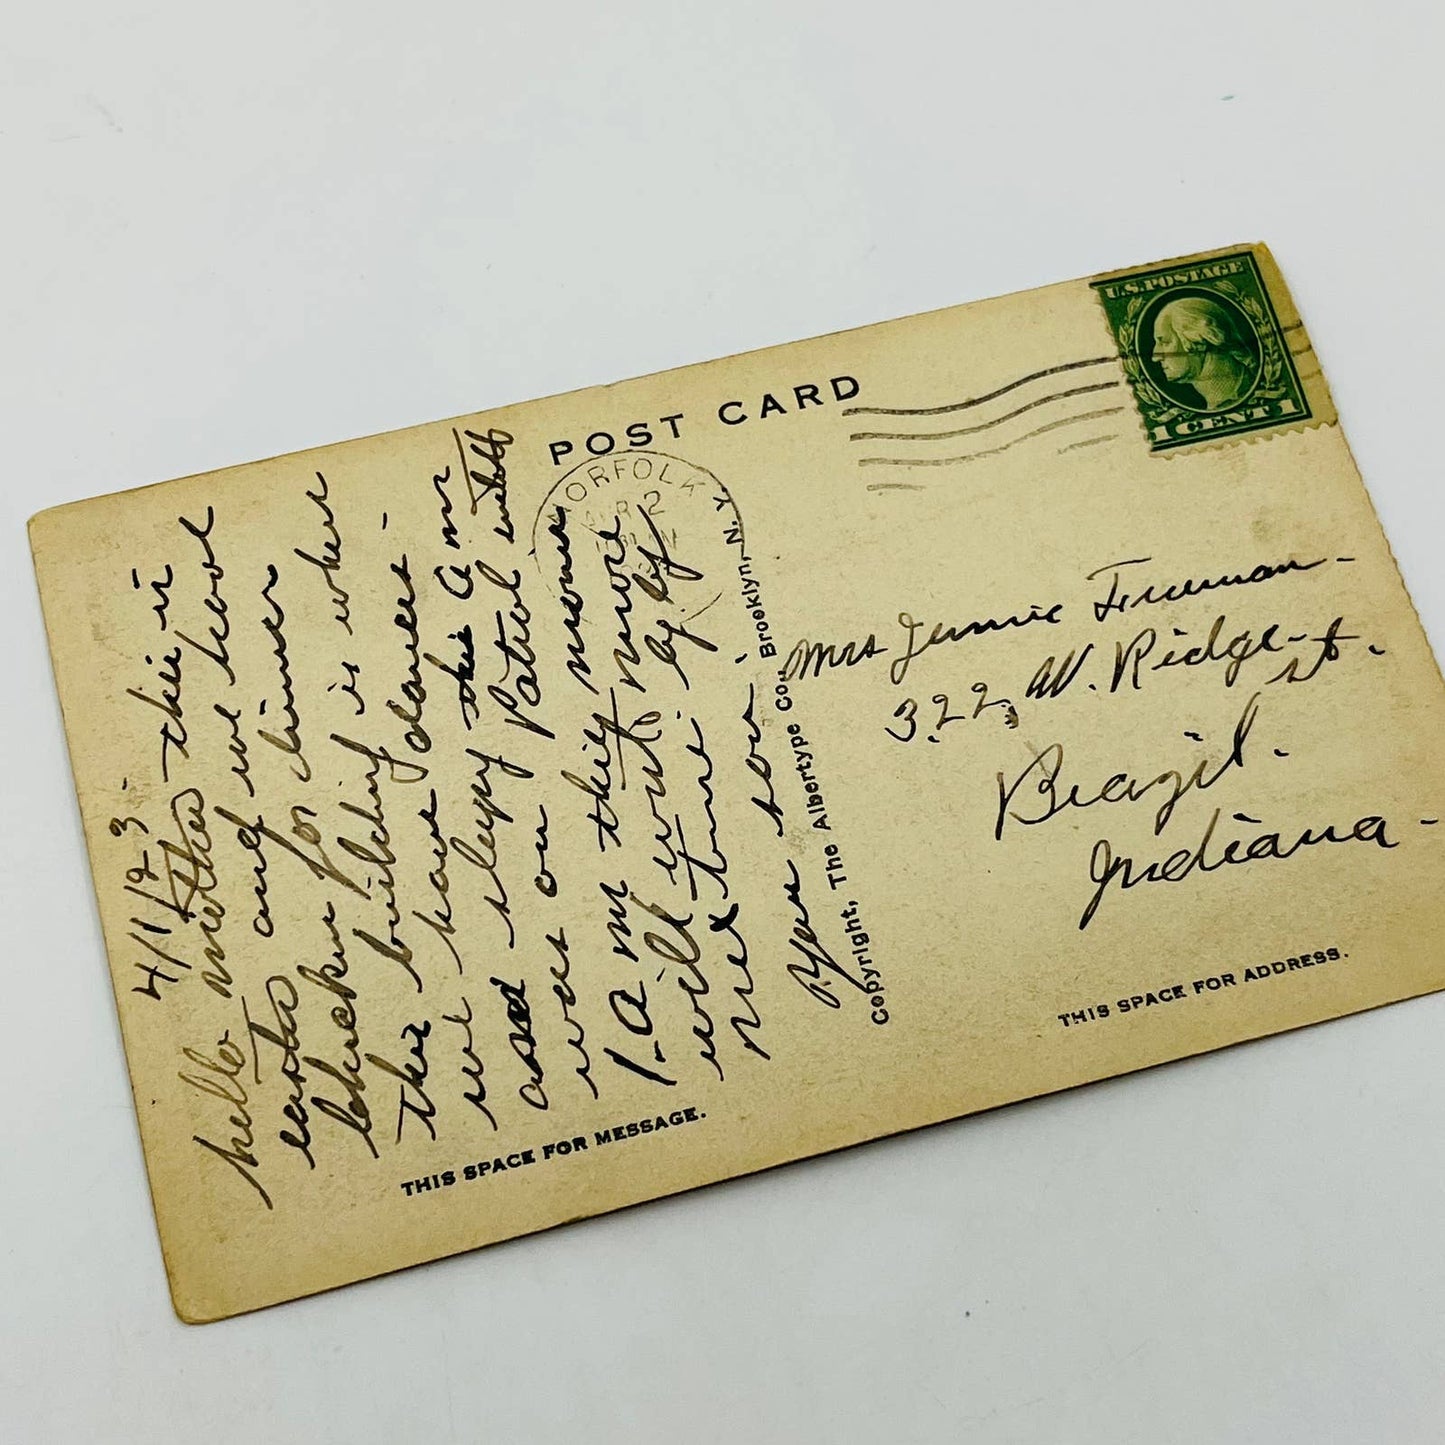 POST CARD
U.S. POSTAGE
1 CENT 1
NORFOLK
2
4/1/23.
hello mother this is
easter and we had
chicken for dinner
this building is where
we have dances.
sleepy this a m
as Patrol
was on this morn
I-am
will write more
next time. by by
Your son.
Copyright, The Albertype Co., Brooklyn, N. Y.
Mrs Jennie Freeman-
322, W. Ridge-st.
Brazil.
Indiana-
THIS SPACE FOR MESSAGE.
THIS SPACE FOR ADDRESS.